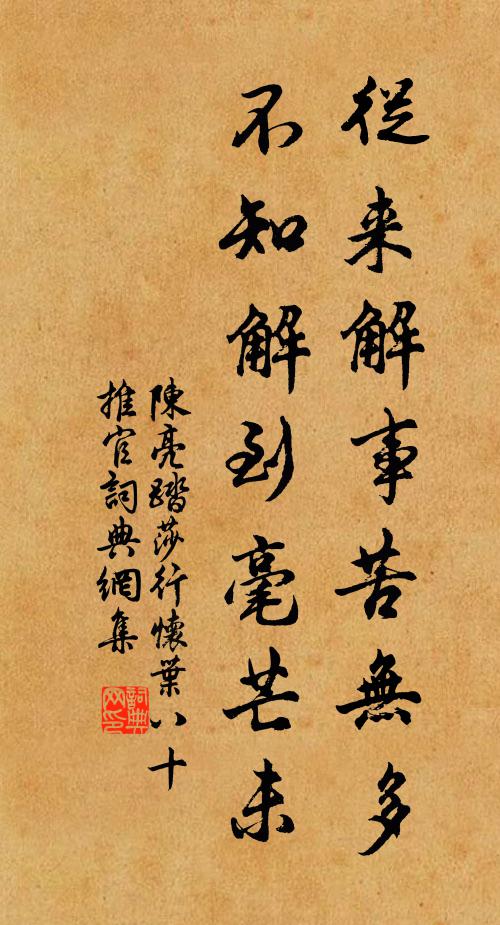 從来解事苦無多
不知解到毫芒未
陳亮踏莎行懷葉八十
推官詞典網集
詞典網印